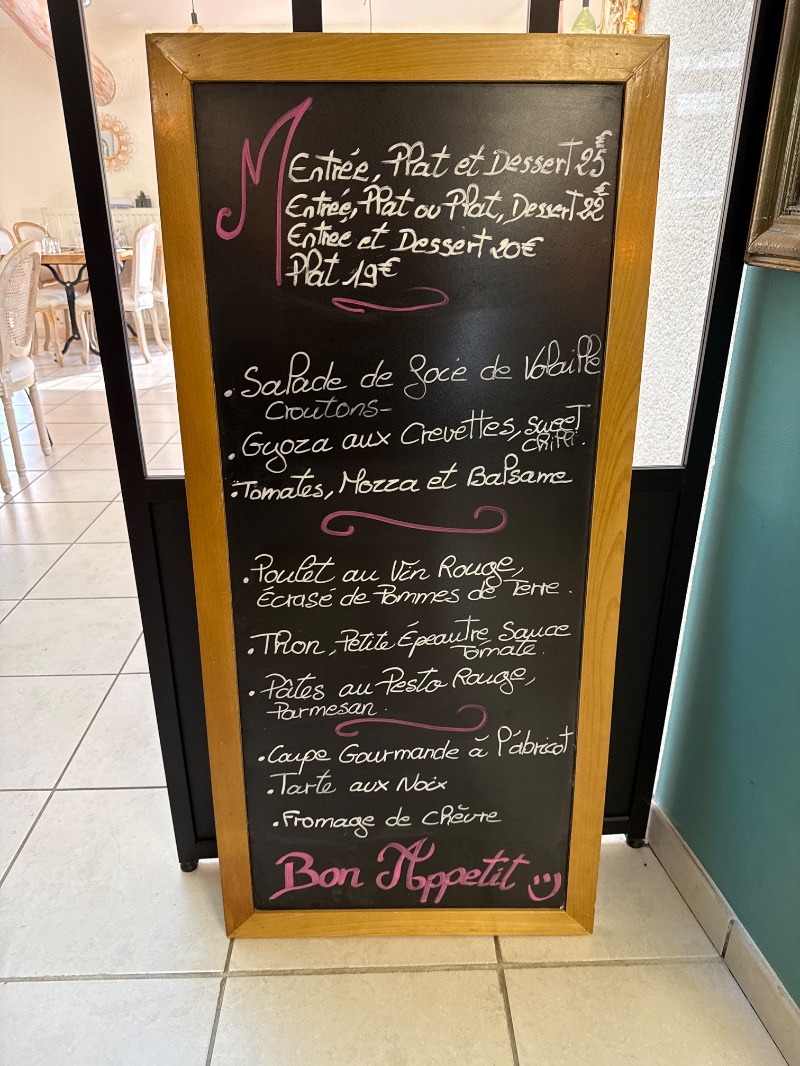 M
Entrée, Plat et Dessert 25€
Entrée, Plat ou Plat, Dessert 22€
Entrée et Dessert 20€
Plat 19€
. Salade de Gocé de Volaille
Croutons-
. Gyoza aux Crevettes, sweet
chilli.
. Tomates, Mozza et Balsame
. Poulet au Vin Rouge,
Écrasé de Pommes de Terre.
. Thon, Petite Épeautre Sauce
Tomate.
. Pâtes au Pesto Rouge,
Parmesan.
. Coupe Gourmande à l'abricot
. Tarte aux Noix
. Fromage de Chèvre
Bon Appetit :)